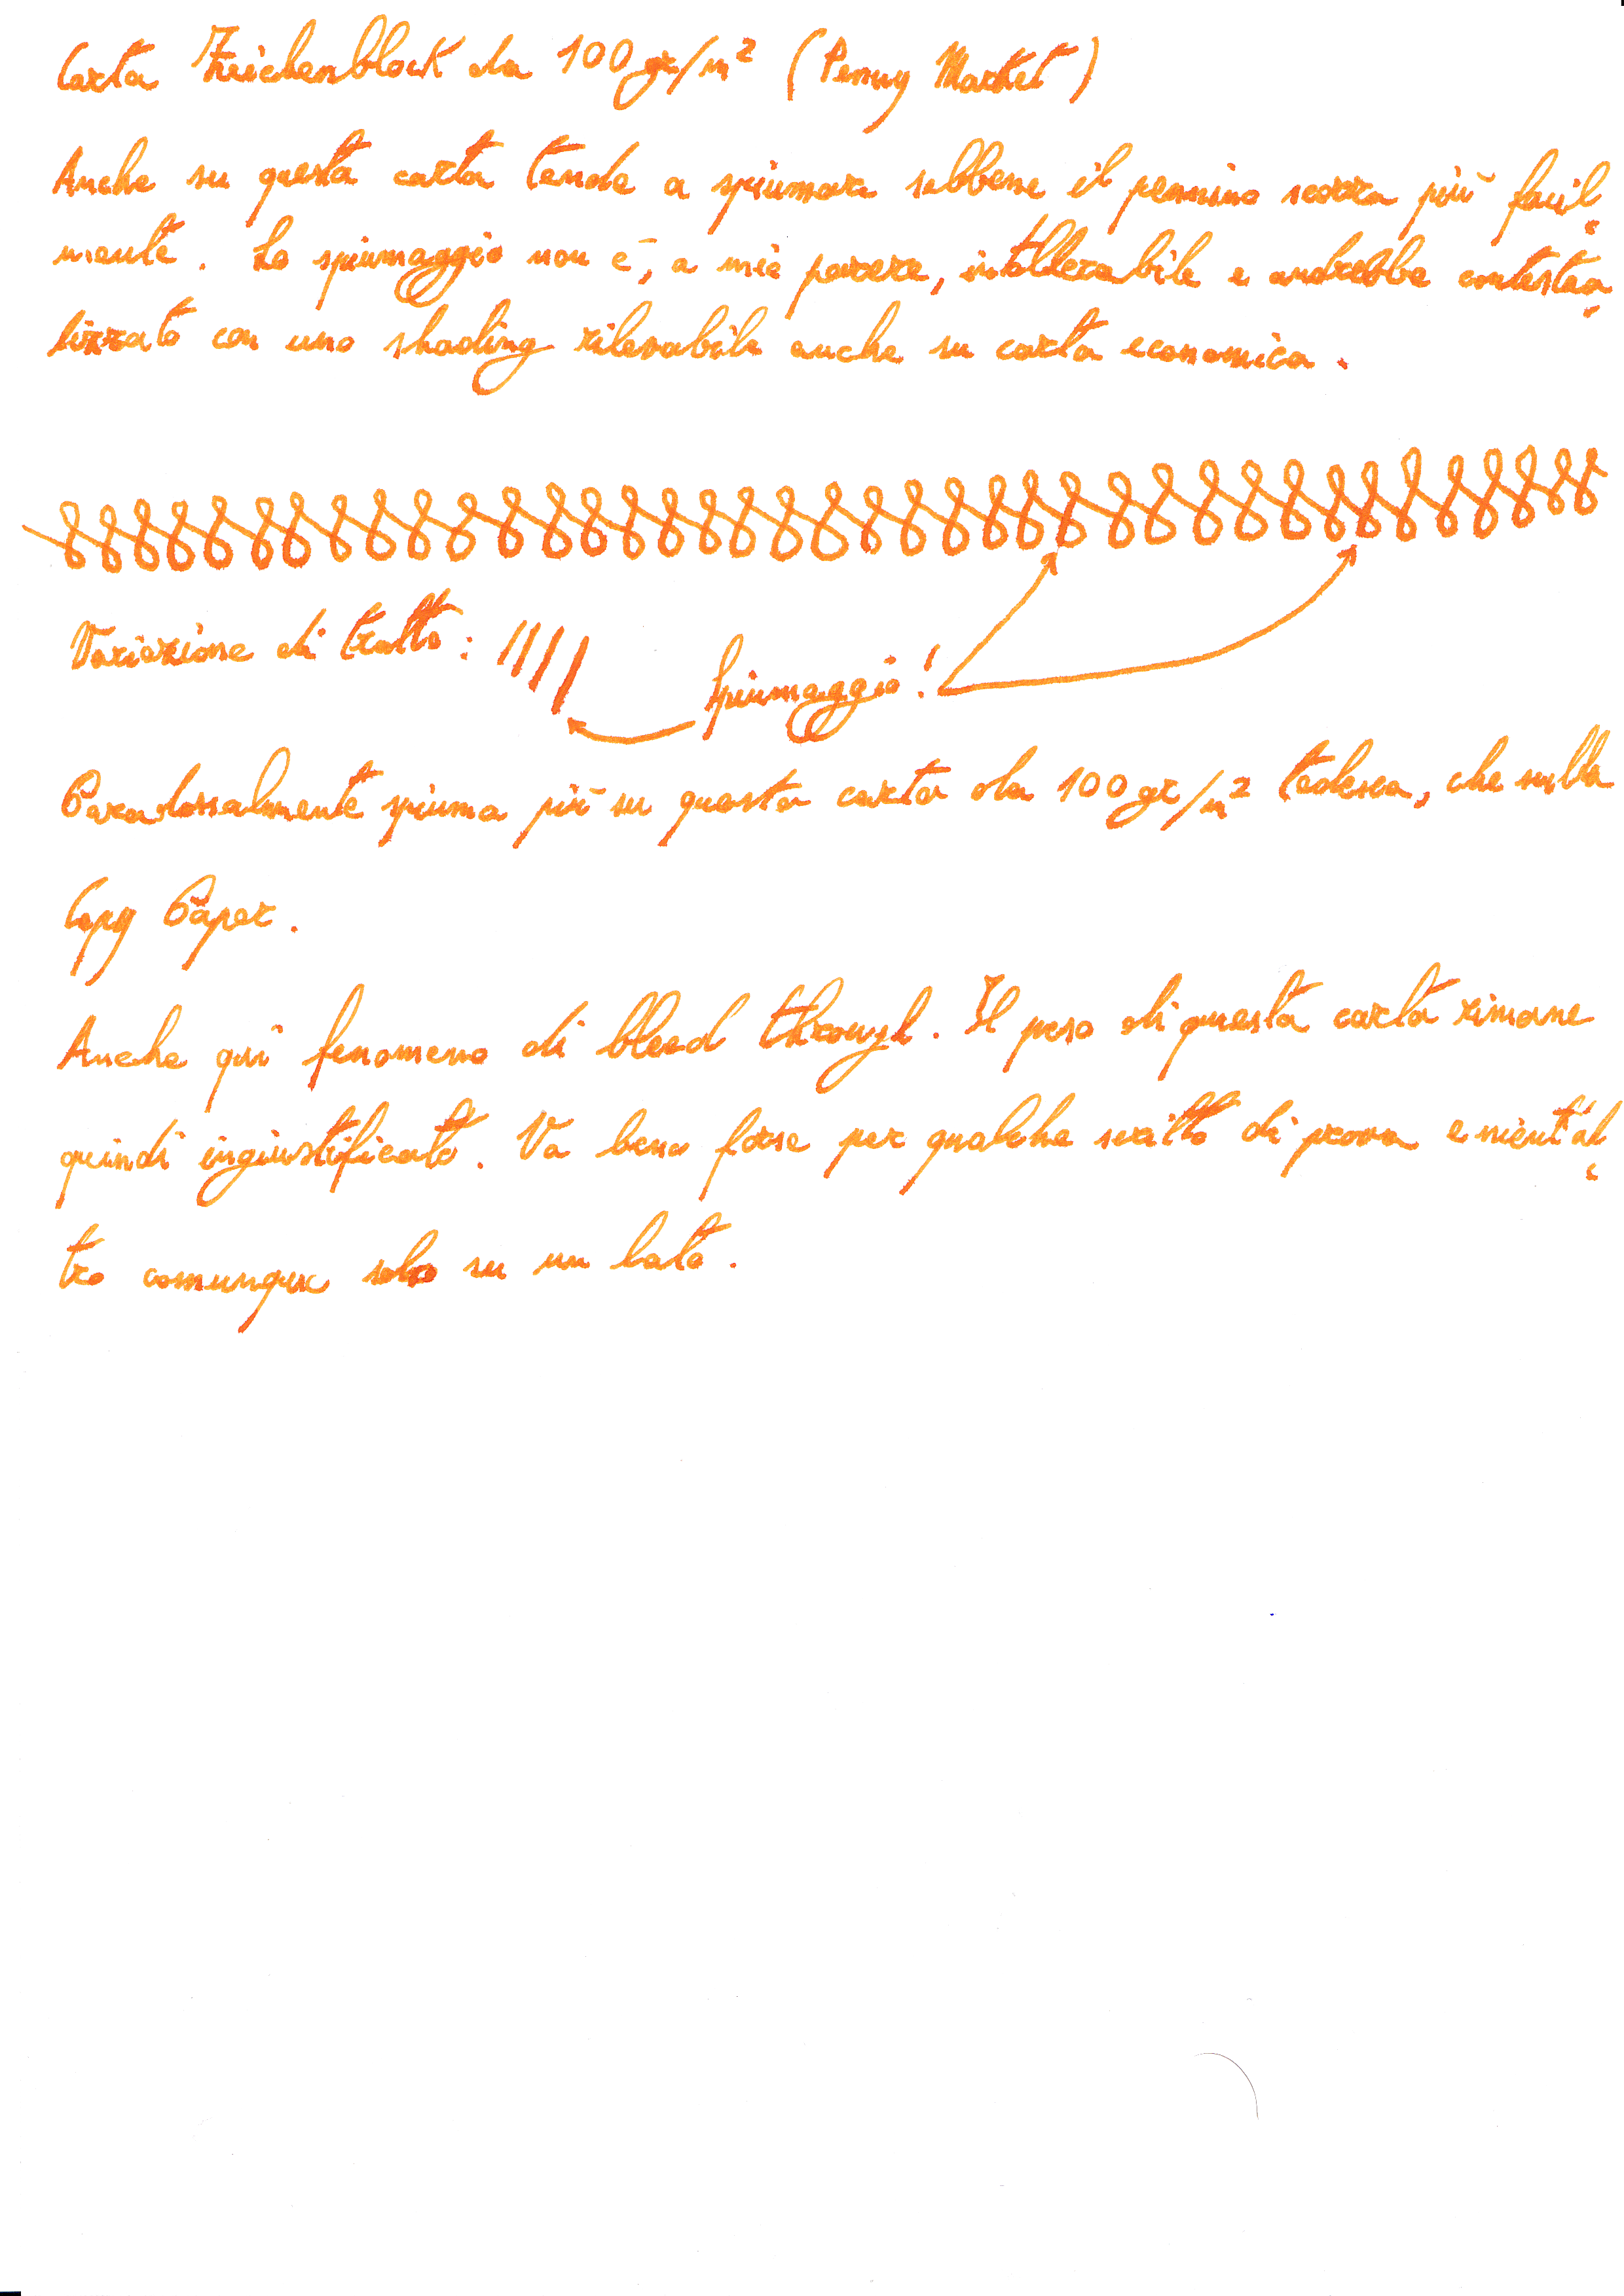 Carta Zeichenblock da 100 gr/m² (Penny Market)
Anche su questa carta tende a spiumare sebbene il pennino scorra più facil
mente. Lo spiumaggio non è, a mio parere, intollerabile e andrebbe contestua
lizzato con uno shading rilevabile anche su carta economica.
Variazione di tratto:
Spiumaggio!
Paradossalmente spiuma più su questa carta da 100 gr/m² tedesca, che sulla
Copy Paper.
Anche qui fenomeno di bleed through. Il peso di questa carta rimane
quindi ingiustificato. Va bene forse per qualche scritto di prova e nient'al
tro comunque solo su un lato.